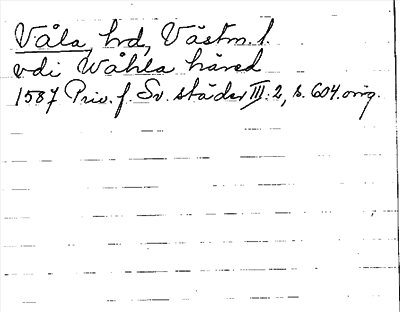 Våla, hrd, Västm. l.
vdi Wåhla häred
1587 Priv. f. Sv. städer III. 2, s. 604. orig.